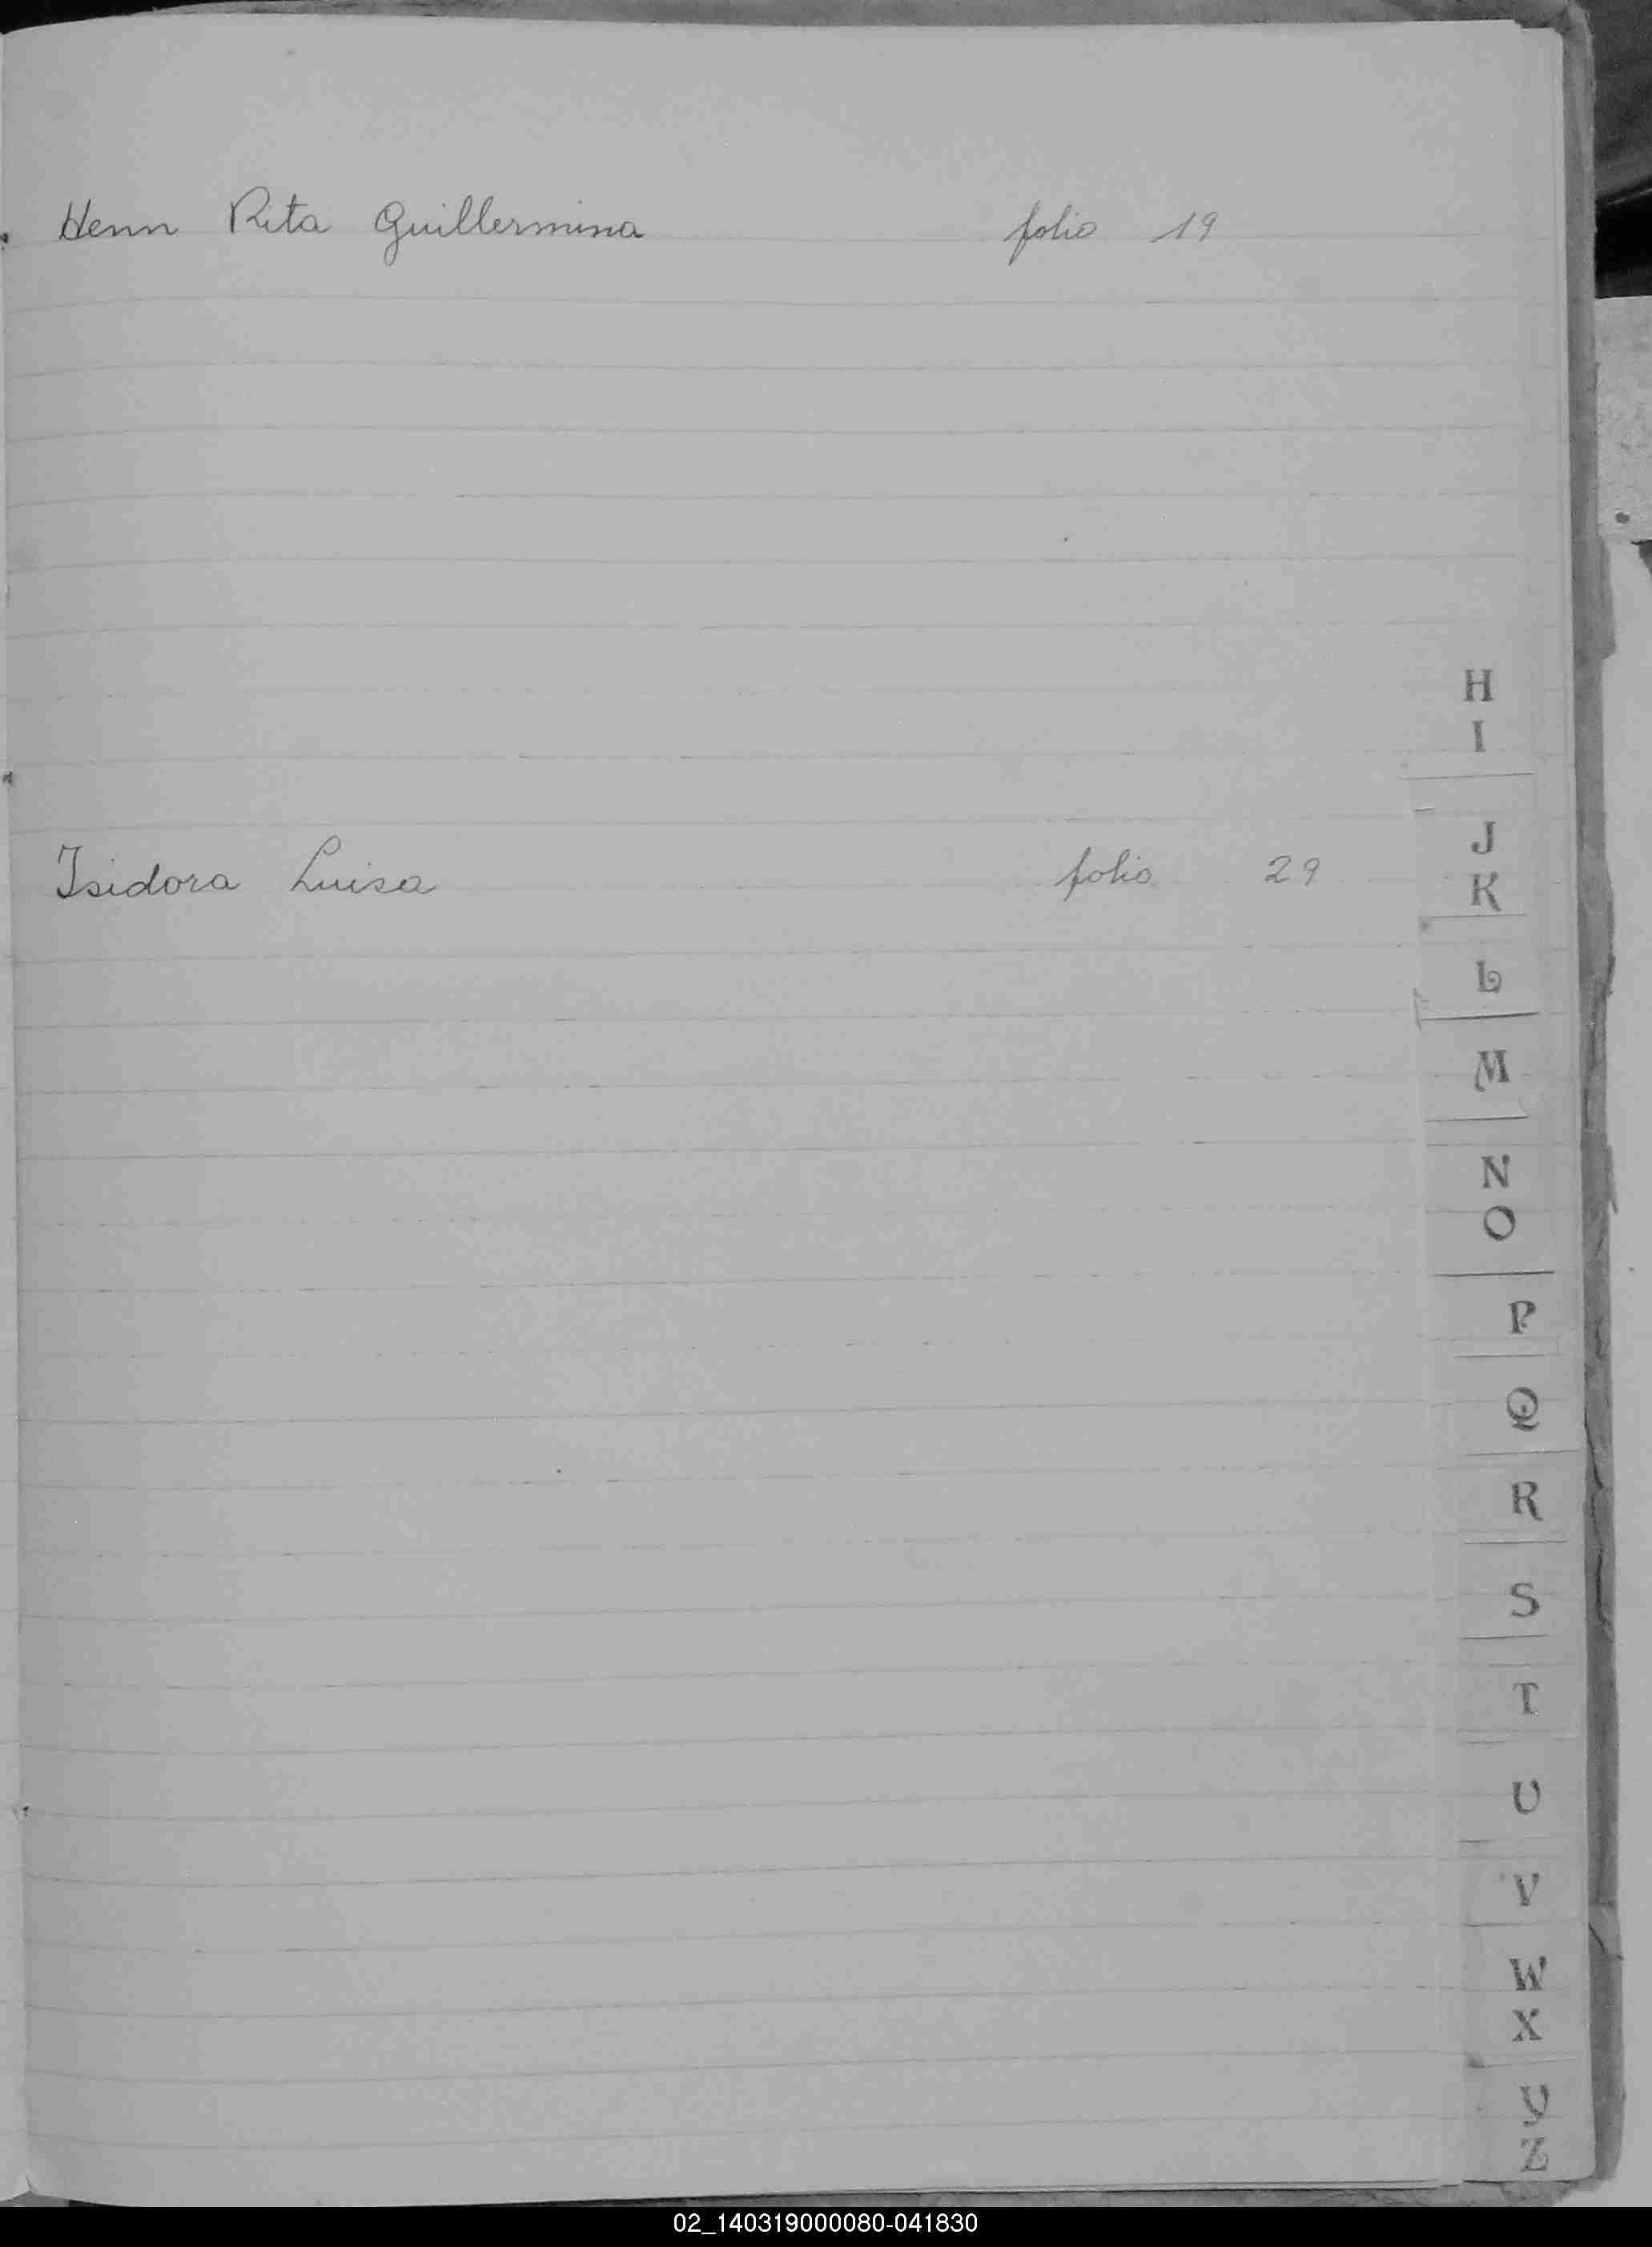 Henn Rita Guillermina folio 19
H
I
Isidora Luisa folio 29
J
K
L
M
N
O
P
Q
R
S
T
U
V
W
X
Y
Z
02_140319000080-041830